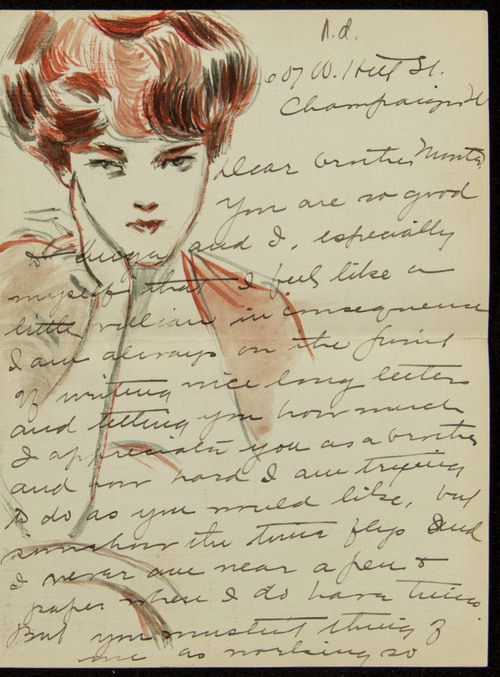 n.d.
607 W. Hill St.
Champaign Ill
Dear brother Monta
You are so good
to and I, especially
myself that I feel like a
little villian in consequence
I am always on the point
of writing nice long letters
and telling you how much
I appreciate you as a brother
and how hard I am trying
to do as you would like, but
somehow the time flys and
I never am near a pen &
paper when I do have time.
But you mustn't think of
me as working so